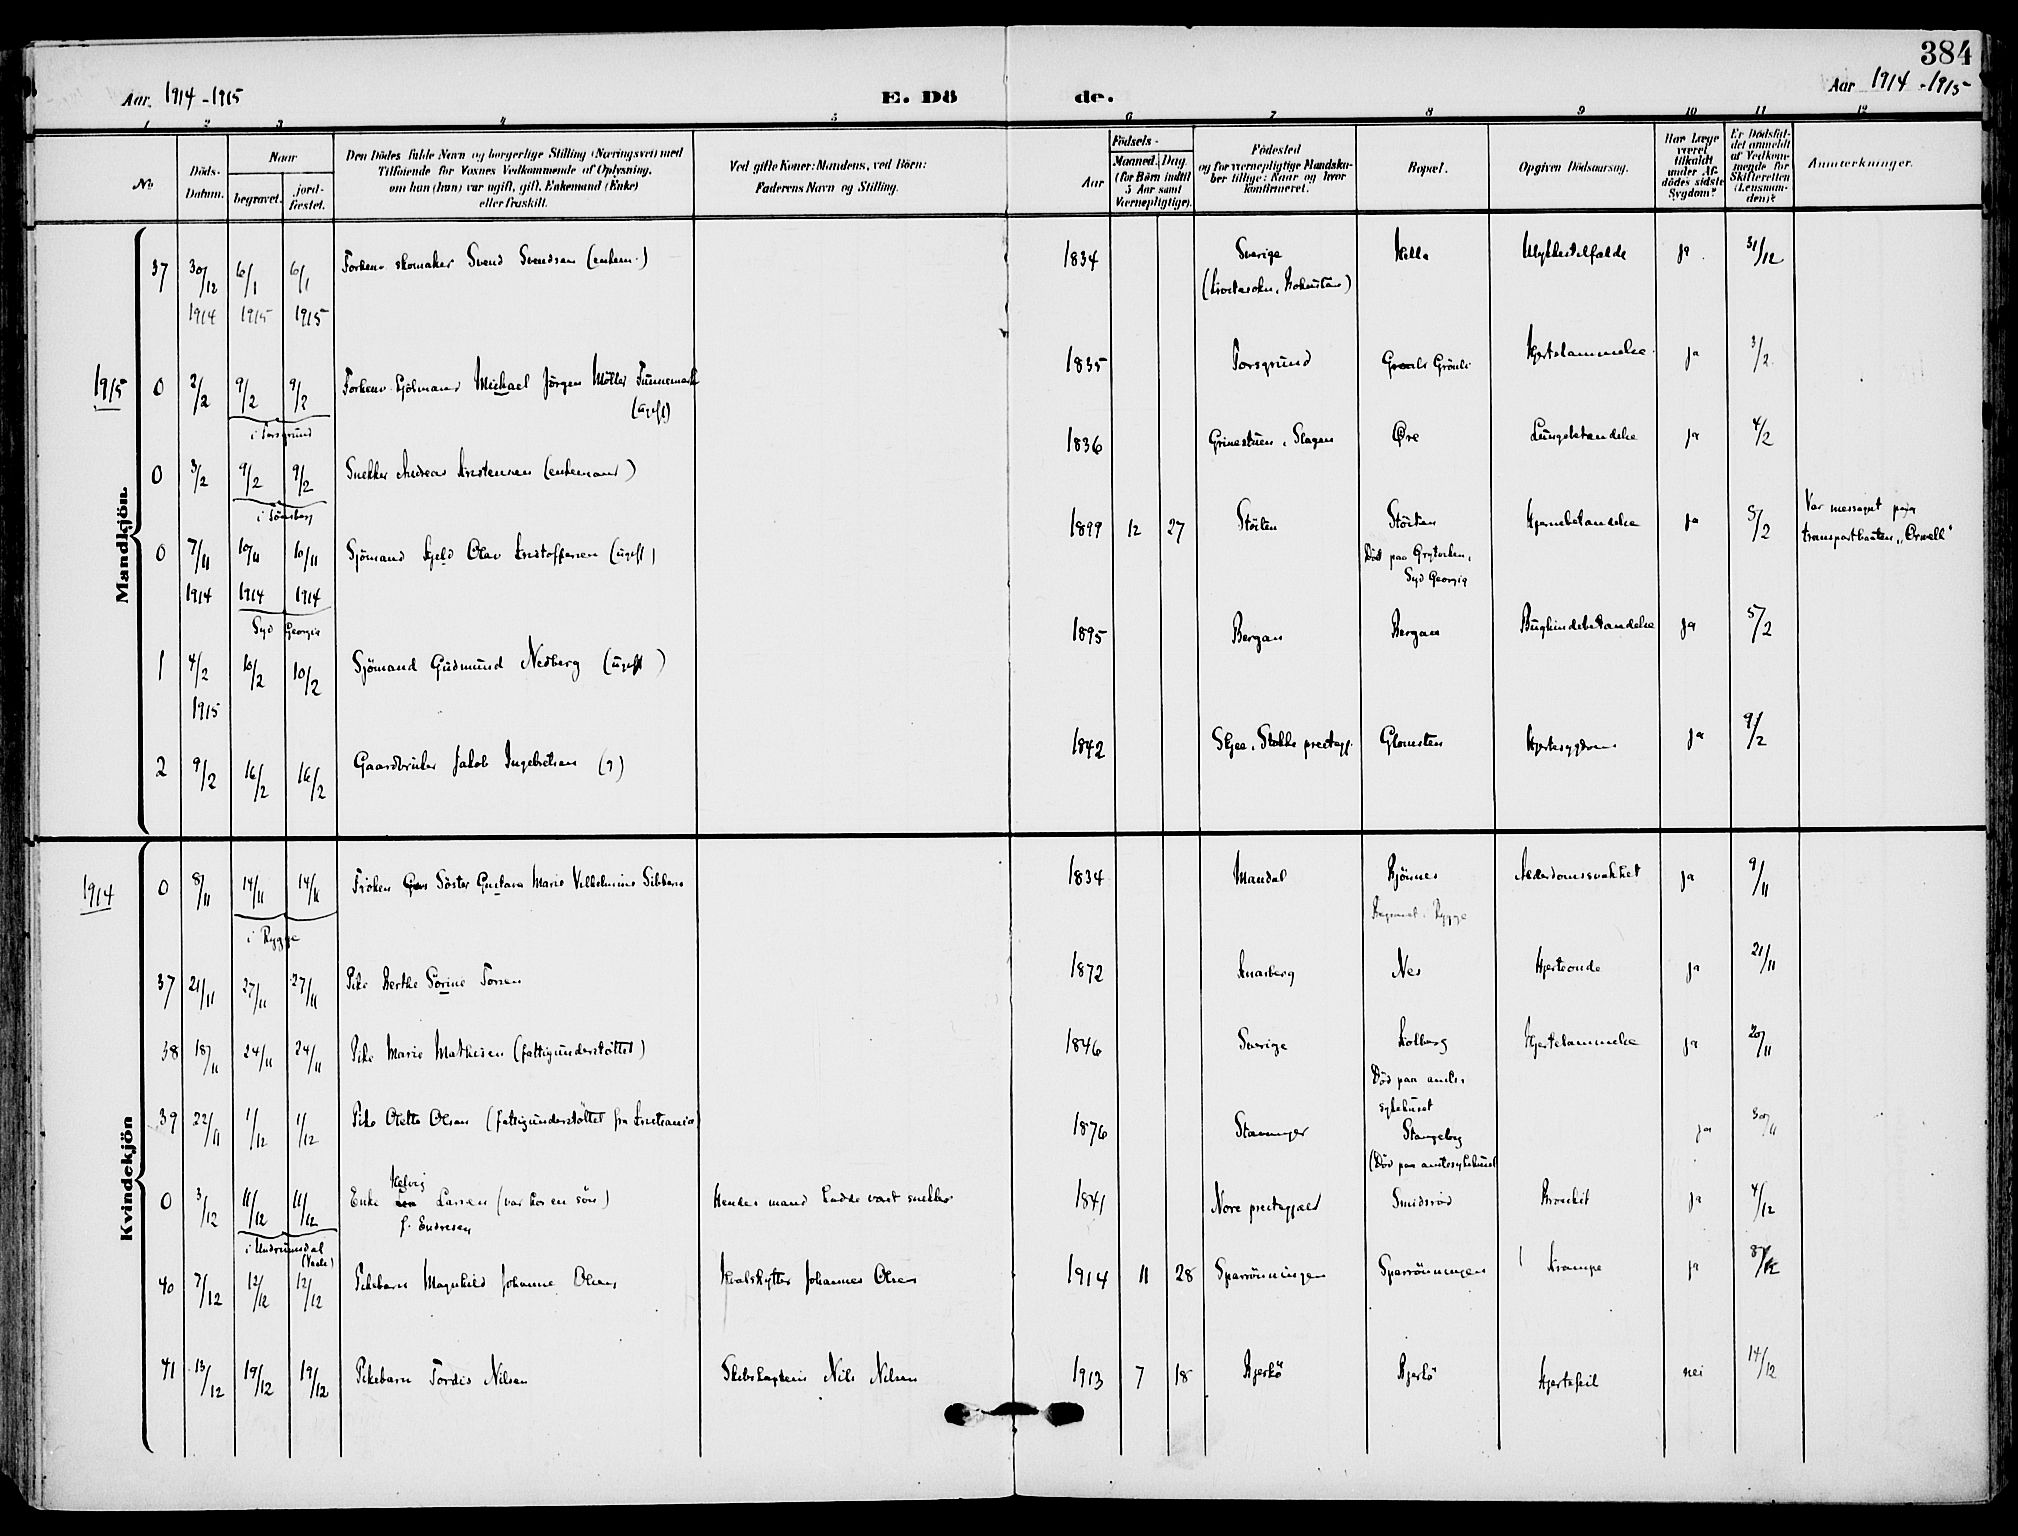 384
Aar. 1914-1915
E. Dö
de.
Aar 1914-1915
1 2 3 4 5 6 7 8 9 10 11 12
No
Döds-Datum.
Naar
begravet.
jord-fæstet.
Den Dödes fulde Navn og borgerlige Stilling (Næringsvei) med
Tilföiende for Voxnes Vedkommende af Oplysning,
om hun (han) var ugift, gift, Enkemand (Enke)
eller fraskilt.
Ved gifte Koner: Mandens, ved Börn:
Faderens Navn og Stilling.
Födsels-
Aar
Maaned. Dag.
(for Börn indtil
5 Aar samt
Værnepligtige).
Födested
og for værnepligtige Mandskaber tillige: Naar og hvor konfirmeret.
Bopæl.
Opgiven Dödsaarsag.
Har Læge været tilkaldt under Afdödes sidste Sygdom?
Er Dödsfaldet anmeldt af Vedkommende for Skifteretten (Lensmanden)?
Anmærkninger.
Mandkjön.
37 30/12 1914 6/1 1915 6/1 1915 Forhenv. skomaker Svend Svendsen (enkem.) 1834 Sverige Ulykkestilfælde ja 31/12
1915
0 2/2 9/2 9/2 Forhenv. Sjömand Michael Jörgen Möller Tunnemark (ugift) 1835 Porsgrund Grönli Hjertelammelse ja 3/2
i Porsgrund
0 3/2 9/2 9/2 Snekker Andreas Kristensen (enkemand) 1836 Grinestuen, Slagen Øre Lungebetændelse ja 4/2
i Tönsberg
0 7/11 1914 10/11 1914 10/11 1914 Sjömand Kjeld Olav Kristoffersen (ugift) 1899 12 27 Störten Störten Hjernebetændelse ja 5/2 Var messegut paa
transportbaaten "Orwell"
Död paa Grytviken,
Syd Georgia
Syd Georgia
1 4/2 1915 10/2 10/2 Sjömand Gudmund Nedberg (ugift) 1895 Bergan Bergan Bughindebetændelse ja 5/2
2 9/2 16/2 16/2 Gaardbruker Jakob Ingebretsen (g) 1842 Skjee, Stokke prestegj. Hjertesygdom ja 9/2
Kvindekjön
1914
0 8/11 14/11 14/11 Fröken Söster Gustava Marie Vilhelmine Sibbern 1834 Mandal Rönnes Alderdomssvakhet ja 9/11
i Rygge
Begravet i Rygge
37 21/11 27/11 27/11 Pike Berthe Sorine Torsen 1872 Knarberg Nes Hjerteonde ja 21/11
38 18/11 24/11 24/11 Pike Marie Mathisen (fattigunderstöttet) 1846 Sverige Kolberg Hjertelammelse ja 20/11
Död paa amts-
sykehuset
39 22/11 1/12 1/12 Pike Olette Olsen (fattigunderstöttet fra Kristiania) 1876 Stavanger Stangeby ja 30/11
(Död paa amtssykehuset
0 3/12 11/12 11/12 Enke Helvig Larsen (var hos en sön) Hendes mand hadde vært snekker 1841 Nore prestegjæld Smidsröd Bronkit ja 4/12
f. Endresen
i Undrumsdal
(Vaale)
40 7/12 12/12 12/12 Pikebarn Magnhild Johanne Olsen Hvalskytter Johannes Olsen 1914 11 28 Sparrönningen Sparrönningen Krampe ja 8/12
41 13/12 19/12 19/12 Pikebarn Tordis Nilsen Skibskaptein Nils Nilsen 1913 7 18 Bjerkö Bjerkö Hjertefeil nei 14/12